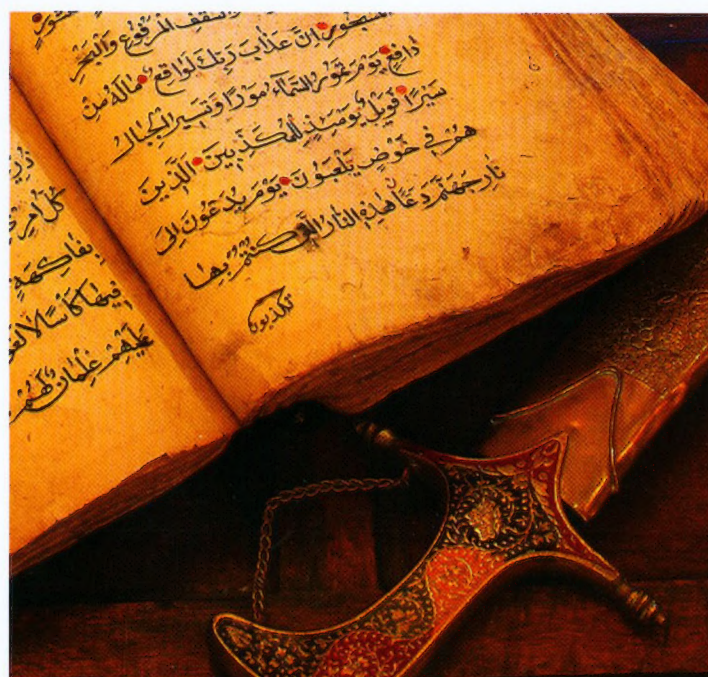 السقف المرفوع والبحر
المسجور ان عذاب ربك لواقع ماله من
دافع يوم تمور السماء مورا وتسير الجبال
سيرا فويل يومئذ للمكذبين الذين
هم في خوض يلعبون يوم يدعون الى
نار جهنم دعا هذه النار التي كنتم بها
تكذبون
كل امر
بفاكهة
فيها كاسا لا لغو
عليهم غلمان لهم